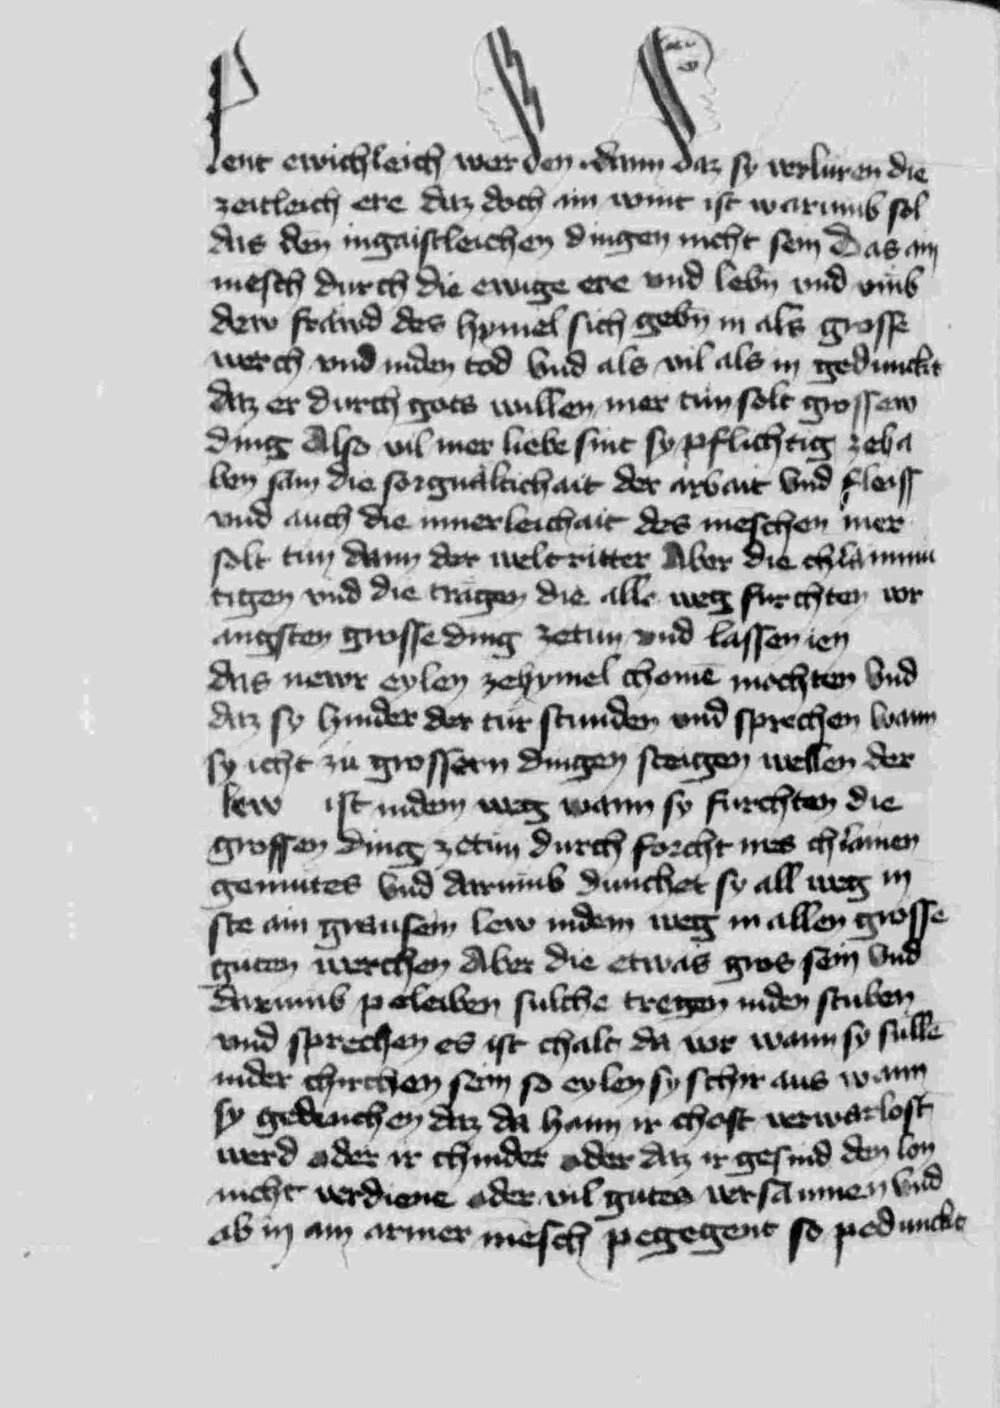 lent ewichleich werden dann daz sy verluren die
zeitleich ere daz doch ain wint ist warumb sol
das den ingaistleichen dingen nicht sein Das ain
mesch durch die ewige ere vnd lebn vnd vmb
dew frawd des hymel sich gebn in als grosse
werch vnd in den tod Vnd als vil als in gedunckt
daz er durch gots willen mer tun solt grossew
ding Also vil mer liebe sint sy pflichtig zeha
ben sam die sorgualtichait der arbait vnd fleiss
vnd auch die innerleichait des meschen mer
solt tun dann der welt ritter Aber die chlainmu
tigen vnd die tragen die alle weg furchten vor
angsten grosse ding zetun vnd lassen ien
das newr eylen zehymel chomē mochten Vnd
daz sy hinder der tur stunden vnd sprechen wann
sy icht zu grossern dingen steigen wellen der
lew ist in dem weg wann sy furchten die
grossen ding zetun durch forcht irs chlainen
gemutes Vnd darumb dunchet sy all weg in
ste ain grausem lew in dem weg in allen grosse
guten werchen Aber die etwas gros sein Vnd
darumb peleiben sulche tregen in den stuben
vnd sprechen es ist chalt da vor wann sy sullē
in der chirchen sein so eylen sy schir aus wann
sy gedenchen daz da haim ir chost verwarlost
werd oder ir chinder oder daz ir gesind den lon
nicht verdiene oder vil gutes versaumen Vnd
ob in ain armer mesch pegegent so pedunckt